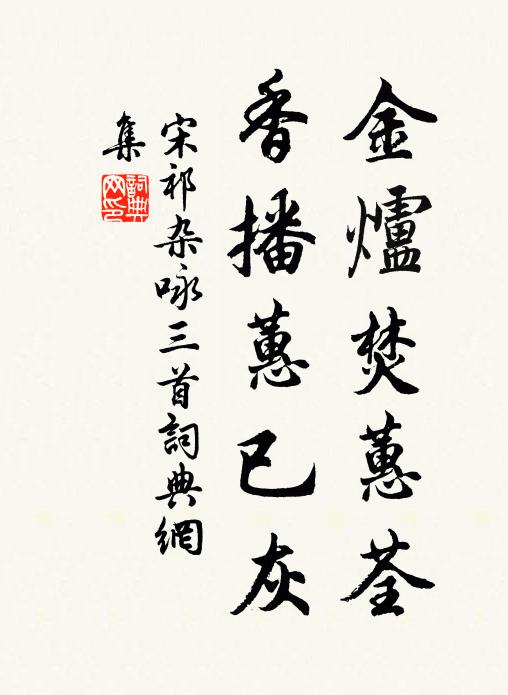 金爐焚蕙荃
香播蕙已灰
宋祁杂咏三首詞典網
集
詞典
网印